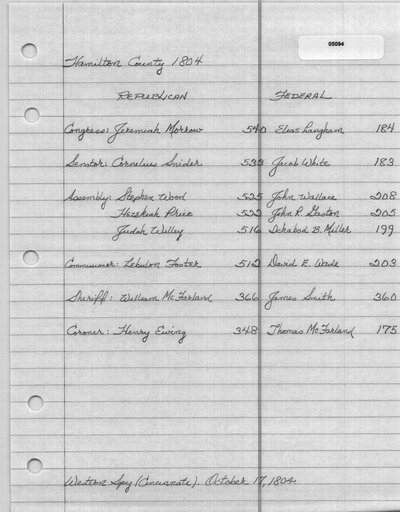 05094
Hamilton County 1804
REPUBLICAN FEDERAL
Congress: Jeremiah Morrow 540 Elias Langham 184
Senator: Cornelius Snider 533 Jacob White 183
Assembly: Stephen Wood 525 John Wallace 208
Hezekiah Price 522 John R. Gaston 205
Judah Willey 516 Ichabod B. Miller 199
Commissioner: Zebulon Foster 512 David E. Wade 203
Sheriff: William McFarland 366 James Smith 360
Coroner: Henry Ewing 348 Thomas McFarland 175
Western Spy (Cincinnati). October 17, 1804.